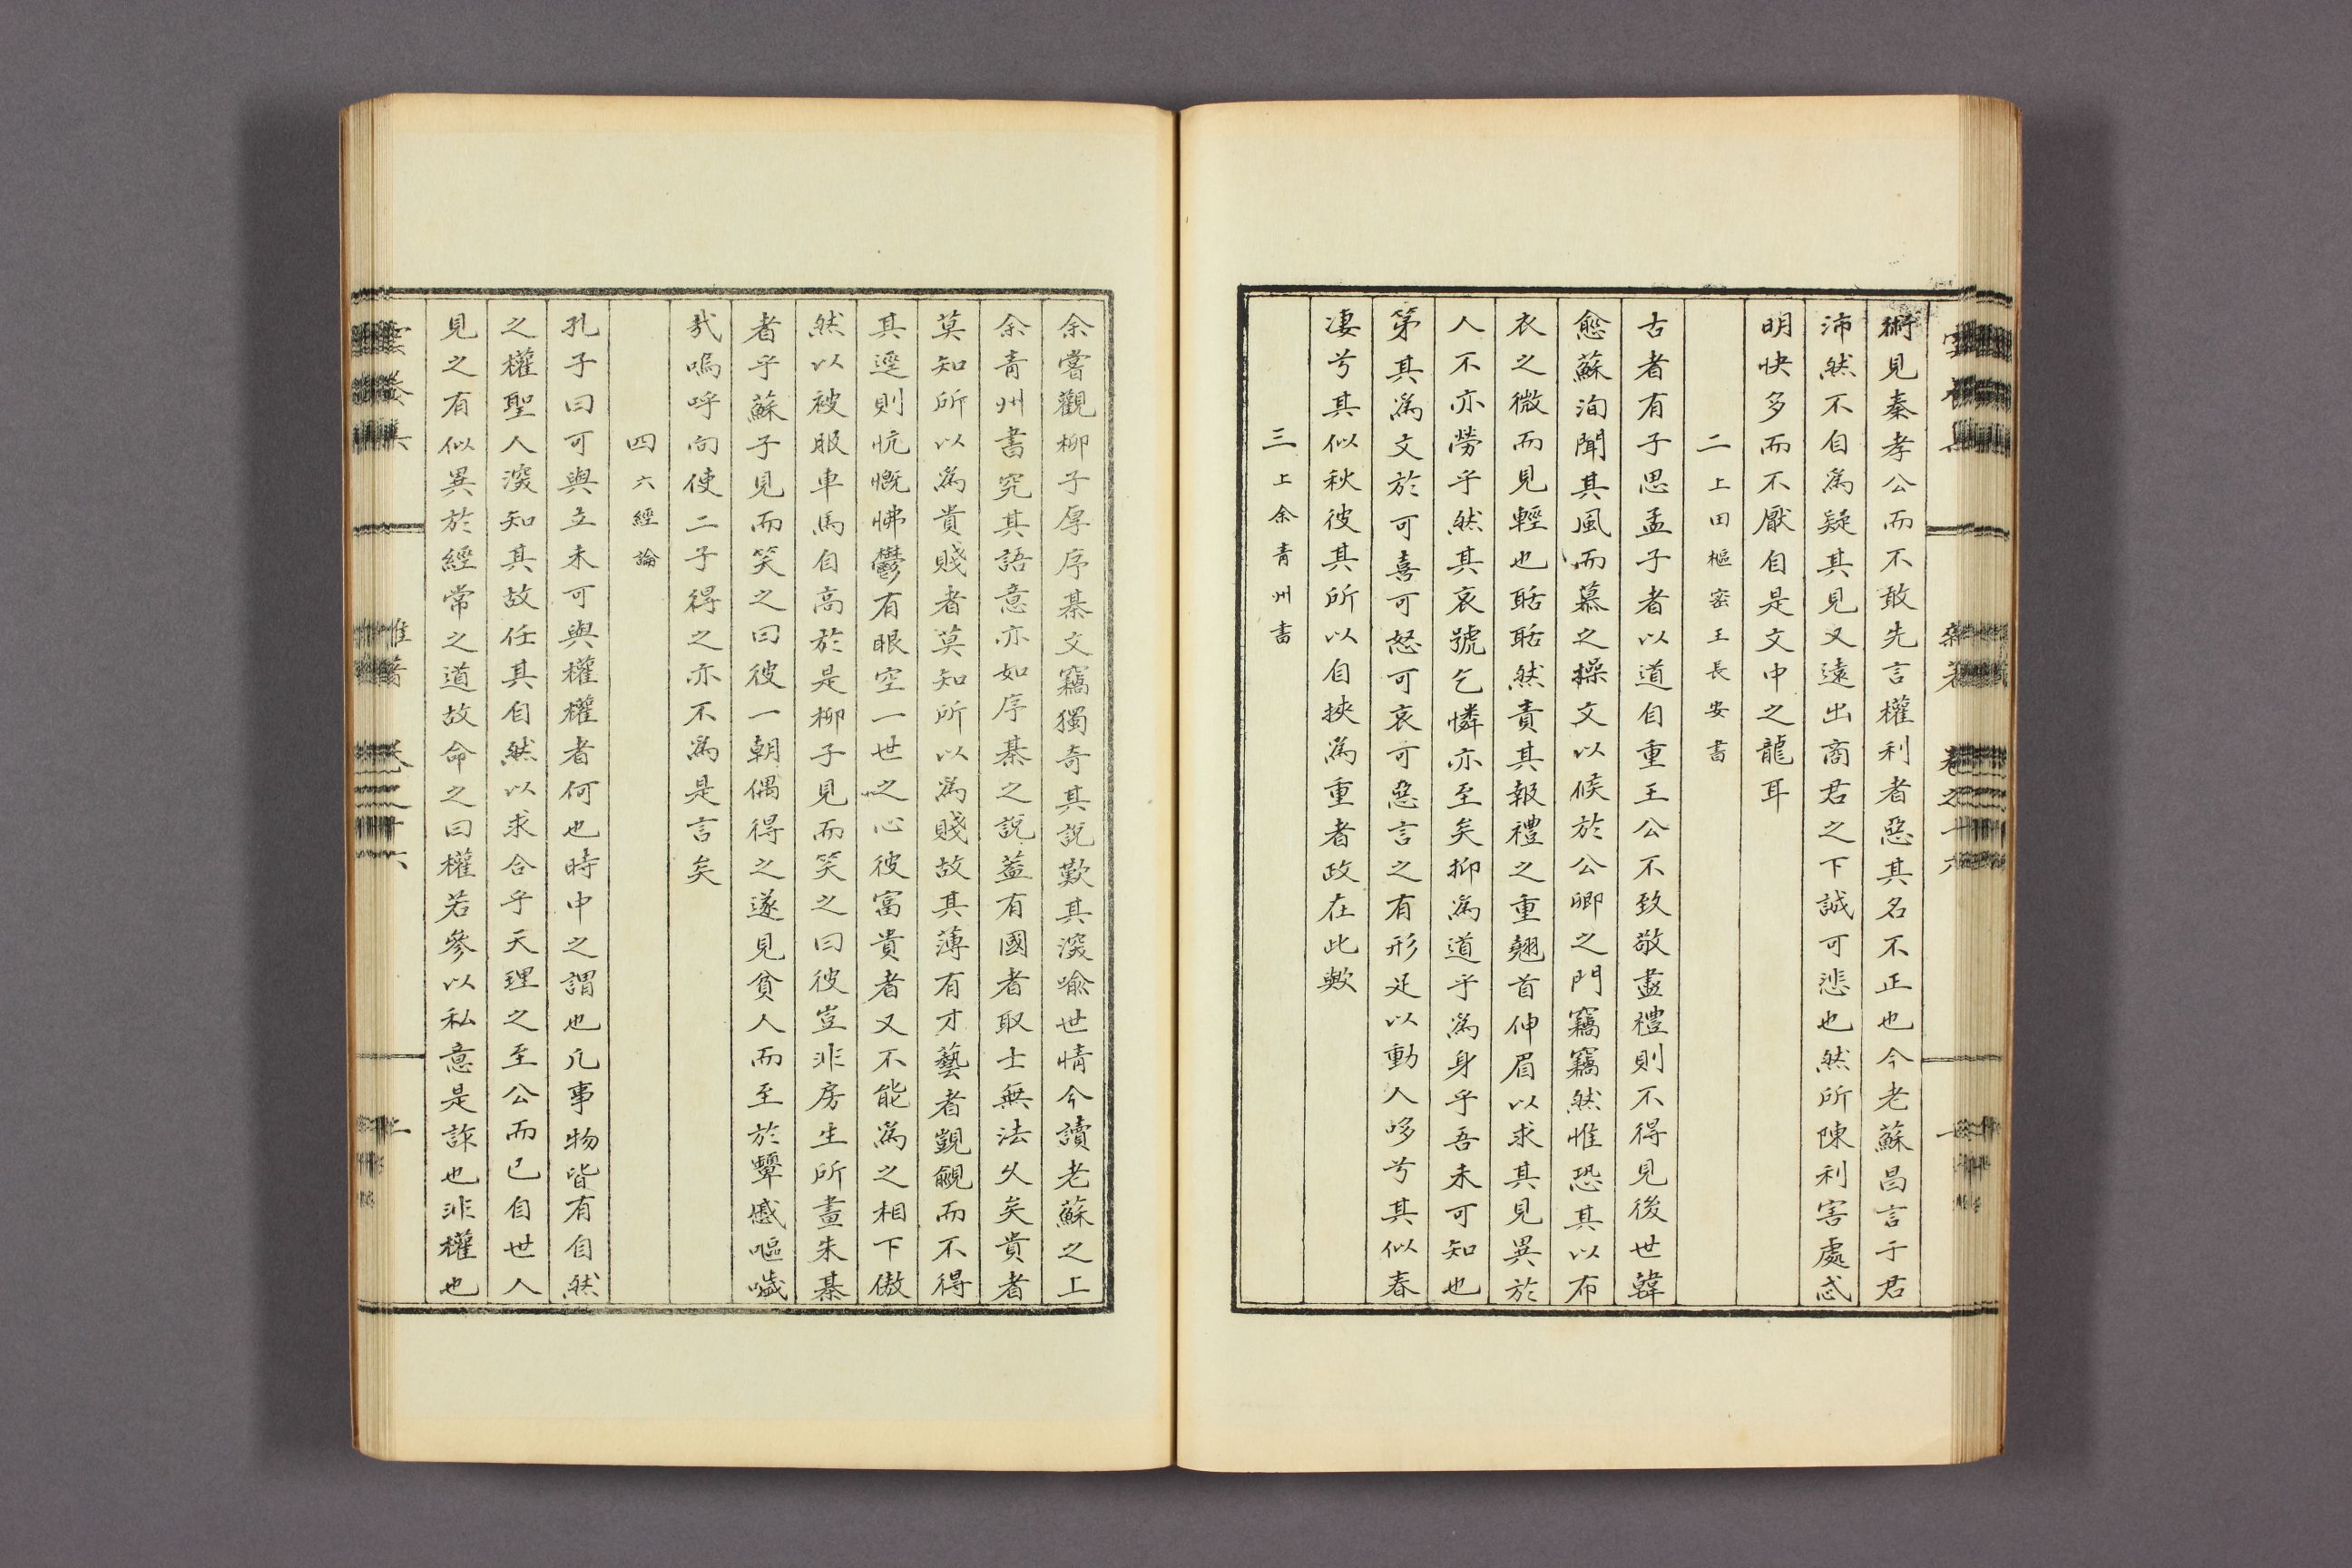 術見秦孝公而不敢先言權利者惡其名不正也今老蘇昌言于君
沛然不自爲疑其見又遠出商君之下誠可悲也然所陳利害處忒
明快多而不厭自是文中之龍耳
二上田樞密王長安書
古者有子思孟子者以道自重王公不致敬盡禮則不得見後世韓
愈蘇洵聞其風而慕之操文以候於公卿之門竊竊然惟恐其以布
衣之微而見輕也聒聒然責其報禮之重翹首伸眉以求其見異於
人不亦勞乎然其哀號乞憐亦至矣抑爲道乎爲身乎吾未可知也
第其爲文於可喜可怒可哀可惡言之有形足以動人哆兮其似春
凄兮其似秋彼其所以自挾爲重者政在此歟
三上余青州書
余嘗觀柳子厚序棊文竊獨奇其說歎其深喩世情今讀老蘇之上
余青州書究其語意亦如序棊之說蓋有國者取士無法久矣貴者
莫知所以爲貴賤者莫知所以爲賤故其薄有才藝者覬覦而不得
其逕則忼慨怫鬱有眼空一世之心彼富貴者又不能爲之相下傲
然以被服車馬自高於是柳子見而笑之曰彼豈非房生所畫朱棊
者乎蘇子見而笑之曰彼一朝偶得之遂見貧人而至於顰慼嘔噦
哉嗚呼向使二子得之亦不爲是言矣
四六經論
孔子曰可與立未可與權權者何也時中之謂也凡事物皆有自然
之權聖人深知其故任其自然以求合乎天理之至公而已自世人
見之有似異於經常之道故命之曰權若參以私意是詐也非權也